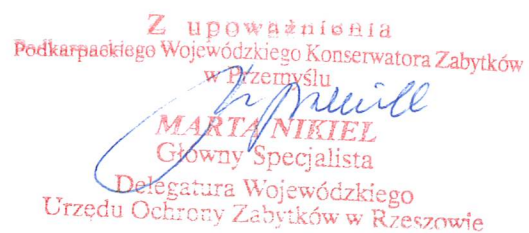 Z upoważnienia
Podkarpackiego Wojewódzkiego Konserwatora Zabytków
w Przemyślu
MARTA NIKIEL
Główny Specjalista
Delegatura Wojewódzkiego
Urzędu Ochrony Zabytków w Rzeszowie